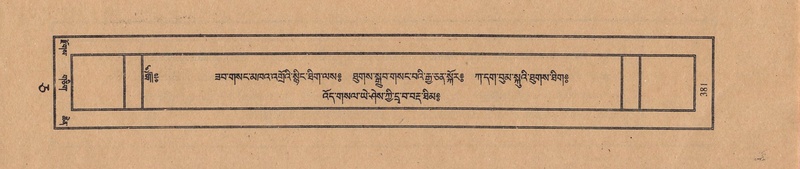 ༄༅།།ཿ ཟབ་གསང་མཁའ་འགྲོའི་སྙིང་ཐིག་ལས༔ ཐུགས་སྒྲུབ་གསང་བའི་རྒྱ་ཅན་སྐོར༔ ཀ་དག་བུམ་སྐུའི་ཐུགས་ཐིག༔
འོད་གསལ་ཡེ་ཤེས་ཀྱི་དྲ་བ་བརྡ་ཐིམ༔
381